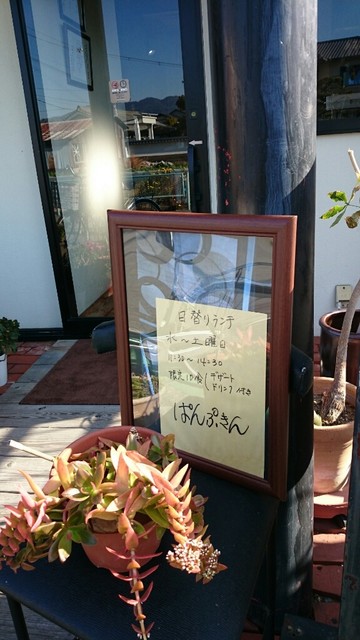 日替りランチ
水〜土曜日
11:30〜14:30
限定10食(デザート
ドリンク付き
ぱんぷきん